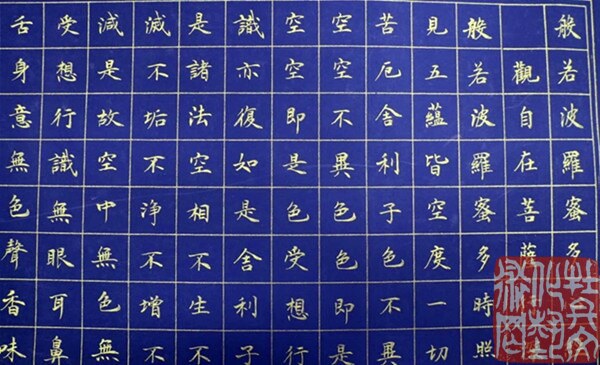 般若波羅蜜多
觀自在菩薩
般若波羅蜜多時照
見五蘊皆空度一切
苦厄舍利子色不異
空空不異色色即是
空空即是色受想行
識亦復如是舍利子
是諸法空相不生不
滅不垢不淨不增不
減是故空中無色無
受想行識無眼耳鼻
舌身意無色聲香味